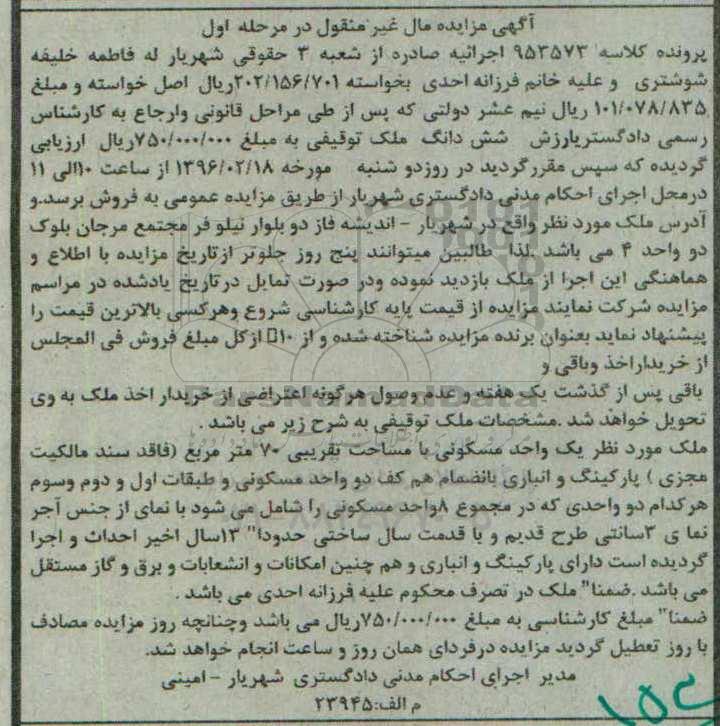 آگهی مزایده مال غیر منقول در مرحله اول
پرونده کلاسه ۹۵۳۵۷۳ اجرائیه صادره از شعبه ۳ حقوقی شهریار له فاطمه خلیفه
شوشتری و علیه خانم فرزانه احدی بخواسته ۲۰۲/۱۵۶/۷۰۱ریال اصل خواسته و مبلغ
۱۰۱/۰۷۸/۸۳۵ ریال نیم عشر دولتی که پس از طی مراحل قانونی وارجاع به کارشناس
رسمی دادگستریارزش شش دانگ ملک توقیفی به مبلغ ۷۵۰/۰۰۰/۰۰۰ریال ارزیابی
گردیده که سپس مقررگردید در روزدو شنبه مورخه ۱۳۹۶/۰۲/۱۸ از ساعت ۱۰الی ۱۱
درمحل اجرای احکام مدنی دادگستری شهریار از طریق مزایده عمومی به فروش برسد.و
آدرس ملک مورد نظر واقع در شهریار – اندیشه فاز دو بلوار نیلو فر مجتمع مرجان بلوک
دو واحد ۴ می باشد .لذا طالبین میتوانند پنج روز جلوتر ازتاریخ مزایده با اطلاع و
هماهنگی این اجرا از ملک بازدید نموده ودر صورت تمایل درتاریخ یادشده در مراسم
مزایده شرکت نمایند مزایده از قیمت پایه کارشناسی شروع وهرکسی بالاترین قیمت را
پیشنهاد نماید بعنوان برنده مزایده شناخته شده و از ۱۰□ ازکل مبلغ فروش فی المجلس
از خریداراخذ وباقی و
باقی پس از گذشت یک هفته و عدم وصول هرگونه اعتراضی از خریدار اخذ ملک به وی
تحویل خواهد شد .مشخصات ملک توقیفی به شرح زیر می باشد .
ملک مورد نظر یک واحد مسکونی با مساحت تقریبی ۷۰ متر مربع (فاقد سند مالکیت
مجزی ) پارکینگ و انباری بانضمام هم کف دو واحد مسکونی و طبقات اول و دوم وسوم
هرکدام دو واحدی که در مجموع ۸واحد مسکونی را شامل می شود با نمای از جنس آجر
نما ی ۳سانتی طرح قدیم و با قدمت سال ساختی حدودا" ۱۳سال اخیر احداث و اجرا
گردیده است دارای پارکینگ و انباری و هم چنین امکانات و انشعابات و برق و گاز مستقل
می باشد .ضمنا" ملک در تصرف محکوم علیه فرزانه احدی می باشد .
ضمنا" مبلغ کارشناسی به مبلغ ۷۵۰/۰۰۰/۰۰۰ریال می باشد وچنانچه روز مزایده مصادف
با روز تعطیل گردید مزایده درفردای همان روز و ساعت انجام خواهد شد.
مدیر اجرای احکام مدنی دادگستری شهریار – امینی
م الف:۲۳۹۴۵
ParsNamadData